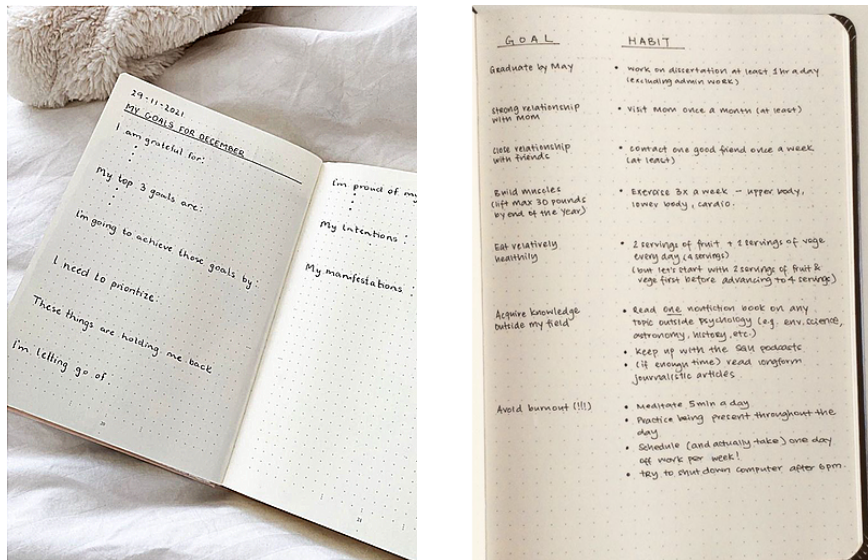 29-11-2021
MY GOALS FOR DECEMBER
I am grateful for:
My top 3 goals are:
I'm going to achieve those goals by:
I need to prioritize:
These things are holding me back
I'm letting go of
I'm proud of my
My intentions :
My manifestations :
GOAL
HABIT
Graduate by May
• work on dissertation at least 1 hr a day
(excluding admin work)
strong relationship
with mom
• visit Mom once a month (at least)
close relationship
with friends
• contact one good friend once a week
(at least)
Build muscles
(lift max 30 pounds
by end of the year)
• Exercise 3x a week - upper body,
lower body, cardio.
Eat relatively
healthily
• 2 servings of fruit + 2 servings of vege
every day (4 servings)
(but let's start with 2 servings of fruit &
vege first before advancing to 4 servings)
Acquire knowledge
outside my field
• Read one nonfiction book on any
topic outside psychology (e.g. env. science,
astronomy, history, etc.)
• keep up with the podcasts
• (if enough time) read longform
journalistic articles
Avoid burnout (!!!)
• Meditate 5 min a day
• Practice being present throughout the
day.
• Schedule (and actually take) one day
off work per week!
• try to shut down computer after 6pm.